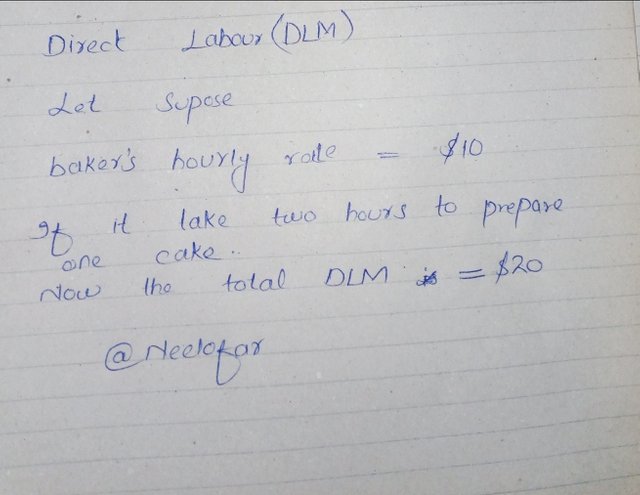 Direct Labour (DLM)
Let Supose
baker's hourly rate = $10
If it take two hours to prepare
one cake..
Now the total DLM is = $20
@Neelofar